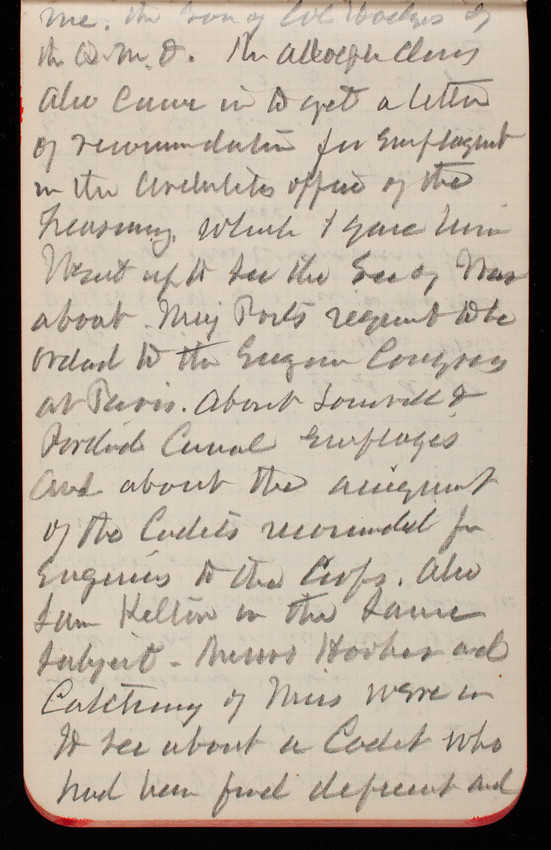 me. the son of Col Hodges of
the Q.M.D. Mr Adolph Cluss
also came in to get a letter
of recommendation for Employment
in the Architects office of the
Treasury, which I gave him
Went up to see the Sec of War
about Maj Posts request to be
ordered to the Engineer Congress
at Paris. About Louisville &
Portland Canal Employes
and about the assignment
of the Cadets recommended for
Engineers to the Corps. Also
saw Kelton on the same
subject - Messrs Hooker and
Catchings of Miss were in
to see about a Cadet who
had been found deficient and